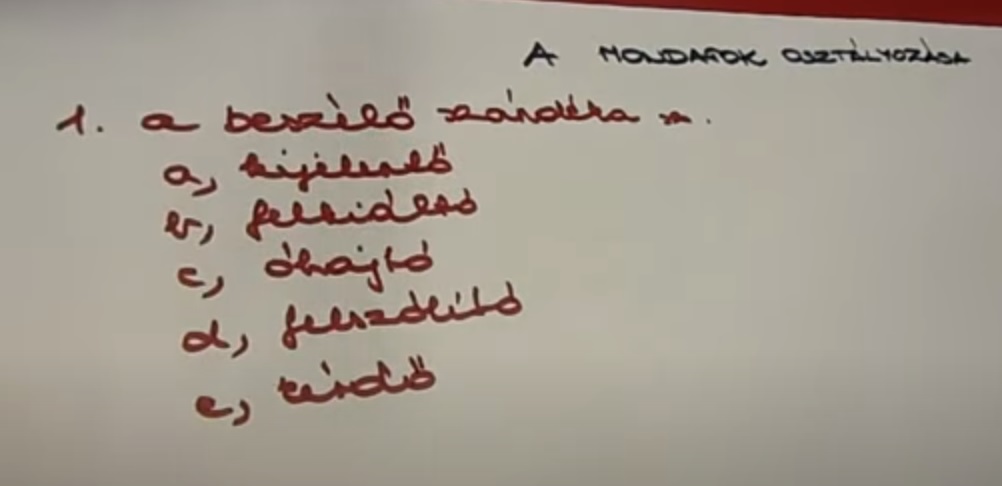 A MONDATOK OSZTÁLYOZÁSA
1. a beszélő szándéka sz.
a, kijelentő
b, felkiáltó
c, óhajtó
d, felszólító
e, kérdő